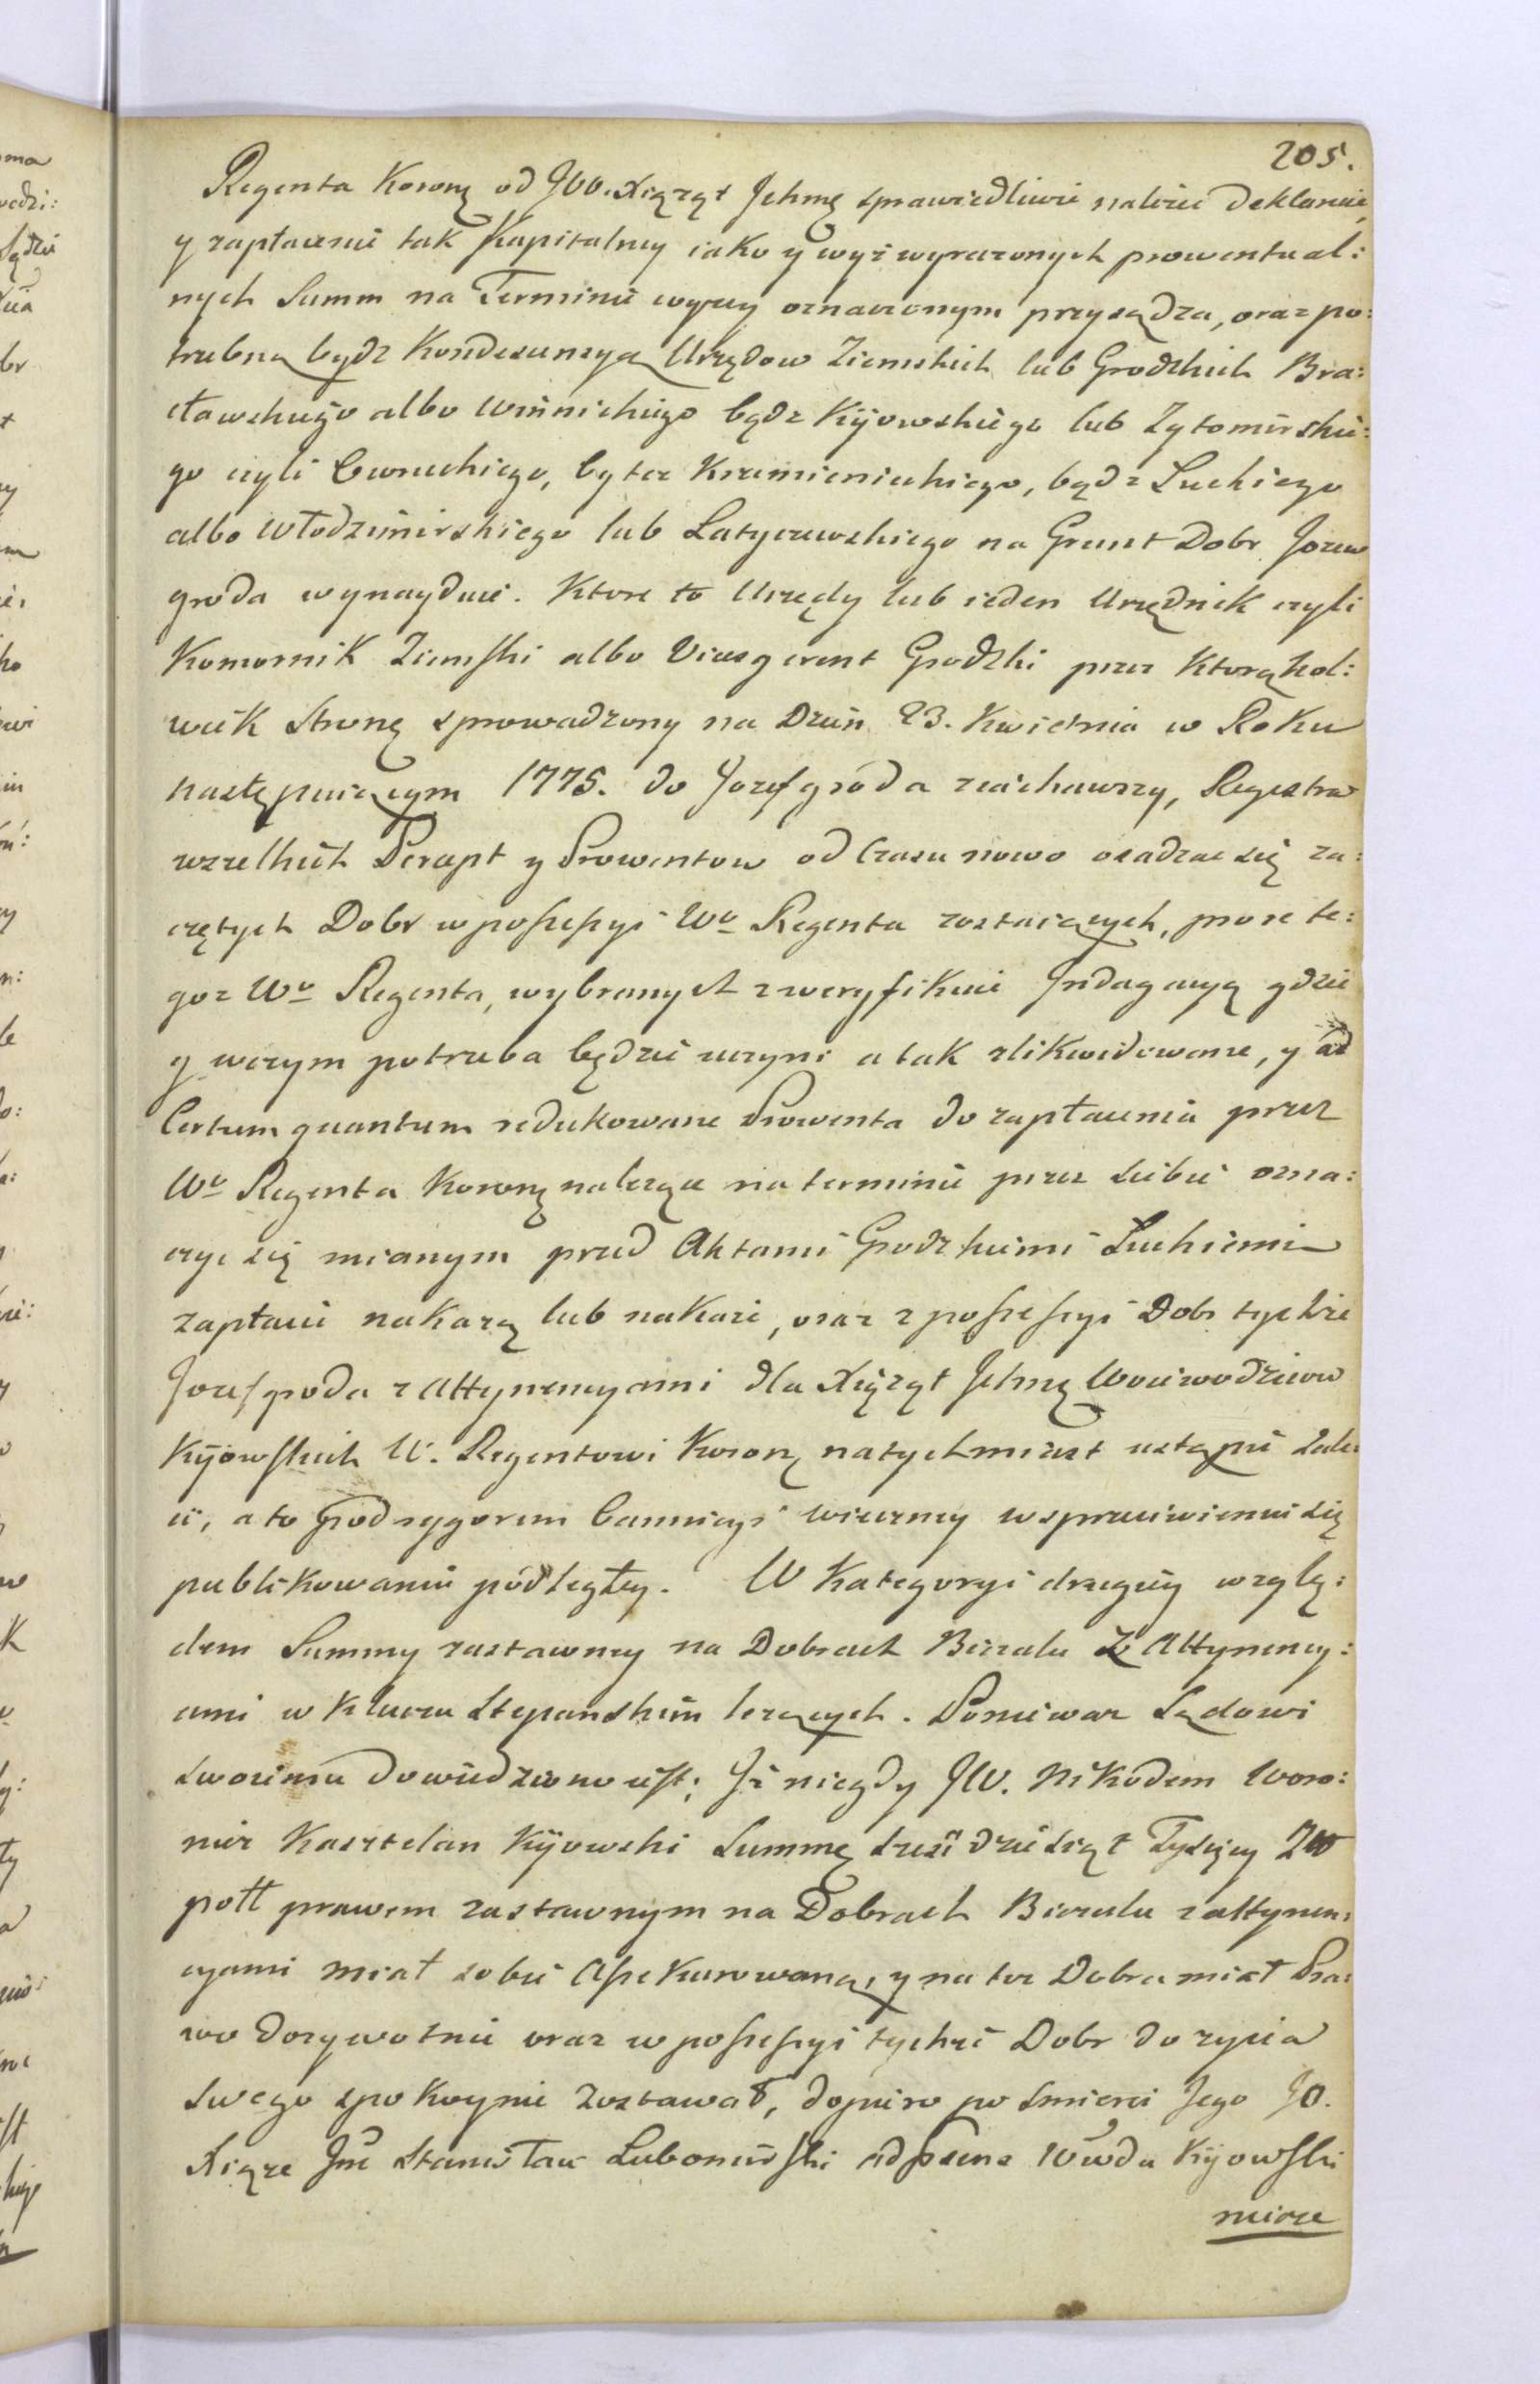 205.
Regenta Korong od JWW. Xiążąt Jchmę sprawiedliwie należeć deklaruie,
y zapłacenie tak Kapitalney iako y wyż wyrażonych prowentual:
nych Summ na Terminie wyżey oznaczonym przysądza, oraz po:
trzebną bydź Kondescensyą Urzędow Ziemskich lub Grodzkich Bra:
cławskiego albo Winnickiego bądz Kijowskiego lub Zytomirskie:
go czyli Owruckiego, by też Krzemienieckiego, bądz Luckiego
albo Włodzimirskiego lub Latyczewskiego na Grunt Dobr Jozew
groda wynayduie. Ktore to Urzędy lub ieden Urzędnik czyli
Komornik Ziemski albo Vicesgerent Grodzki przez Ktorąkol:
wiek Stronę sprowadzony na Dzień 23. Kwietnia w Roku
następuiącym 1775. do Jozefgroda ziachawszy, Regestra
wszelkich Percept y Prowentow od Czasu nowo osadzac się za:
czętych Dobr w possessyi Wo Regenta zostaiących, przez te:
goz Wo Regenta, wybranych zweryfikuie Jndagacyą gdzie
y w czym potrzeba będzie uczyni a tak zlikwidowane, y ad
Certum quantum redukowane Prowenta do zapłacenia przez
Wo Regenta Korong należące na terminie przez siebie ozna:
czyc się mianym przed Aktami Grodzkiemi Luckiemi
zapłacić nakażą lub nakaże, oraz z possessyi Dobr tychże
Jozefgroda z Attynencyami dla Xiążąt Jchmę Woiewodzicow
Kijowskich W. Regentowi Korong natychmiast ustąpić zale
ci, a to pod rygorem Bannicyi wieczney w sprzeciwieniu się
publikowaniu podległey. W Kategoryi drugiey wzglę:
dem Summy zastawney na Dobrach Bereźła z Attynency:
ami w Kluczu Stepańskim leżących. Ponieważ Sądowi
swoiemu dowiedziono iest; Jż niegdy JW. Nikodem Woro:
nicz Kasztelan Kijowski Summę sześdziesiąt Tysięcy Zło
poll prawem zastawnym na Dobrach z attynen:
cyami miał sobie Assekurowaną, y na też Dobra miał Pra:
wo dożywotnie oraz w possessyi tychże Dobr do życia
swego spokoynie zostawał, dopiero po smierci Jego JO.
Xiąże Jmć Stanisław Lubomirski Wwda Kijowski